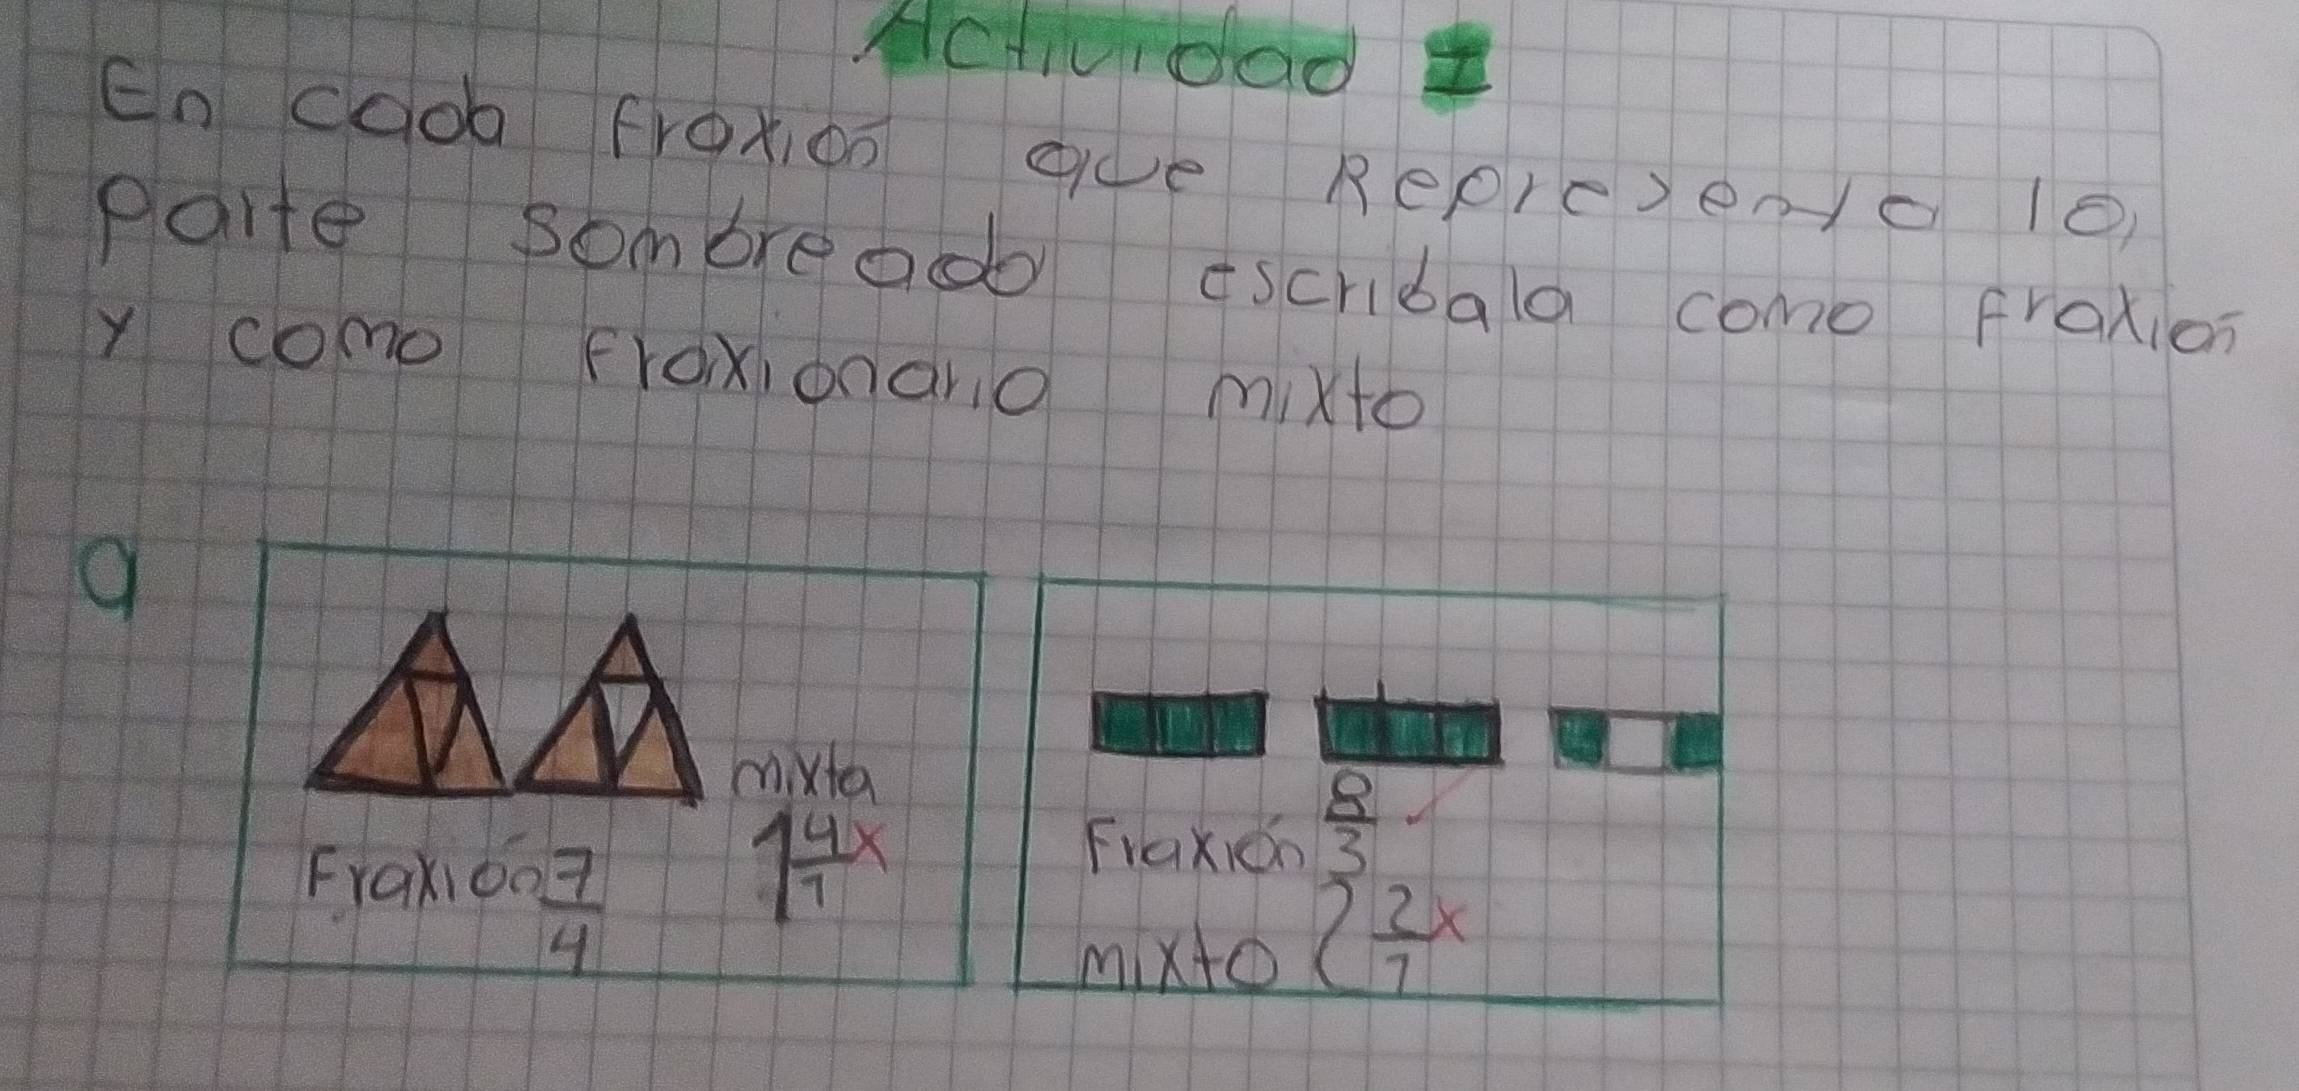 Actividad 1
En cada fraxión que Represente la,
parte sombreado escribala como fraxión
y como fraxionario mixto
a
mixta
Fraxión 7/4 1 4/7 x
Fraxión 8/3 ✓
mixto 2 2/7 x